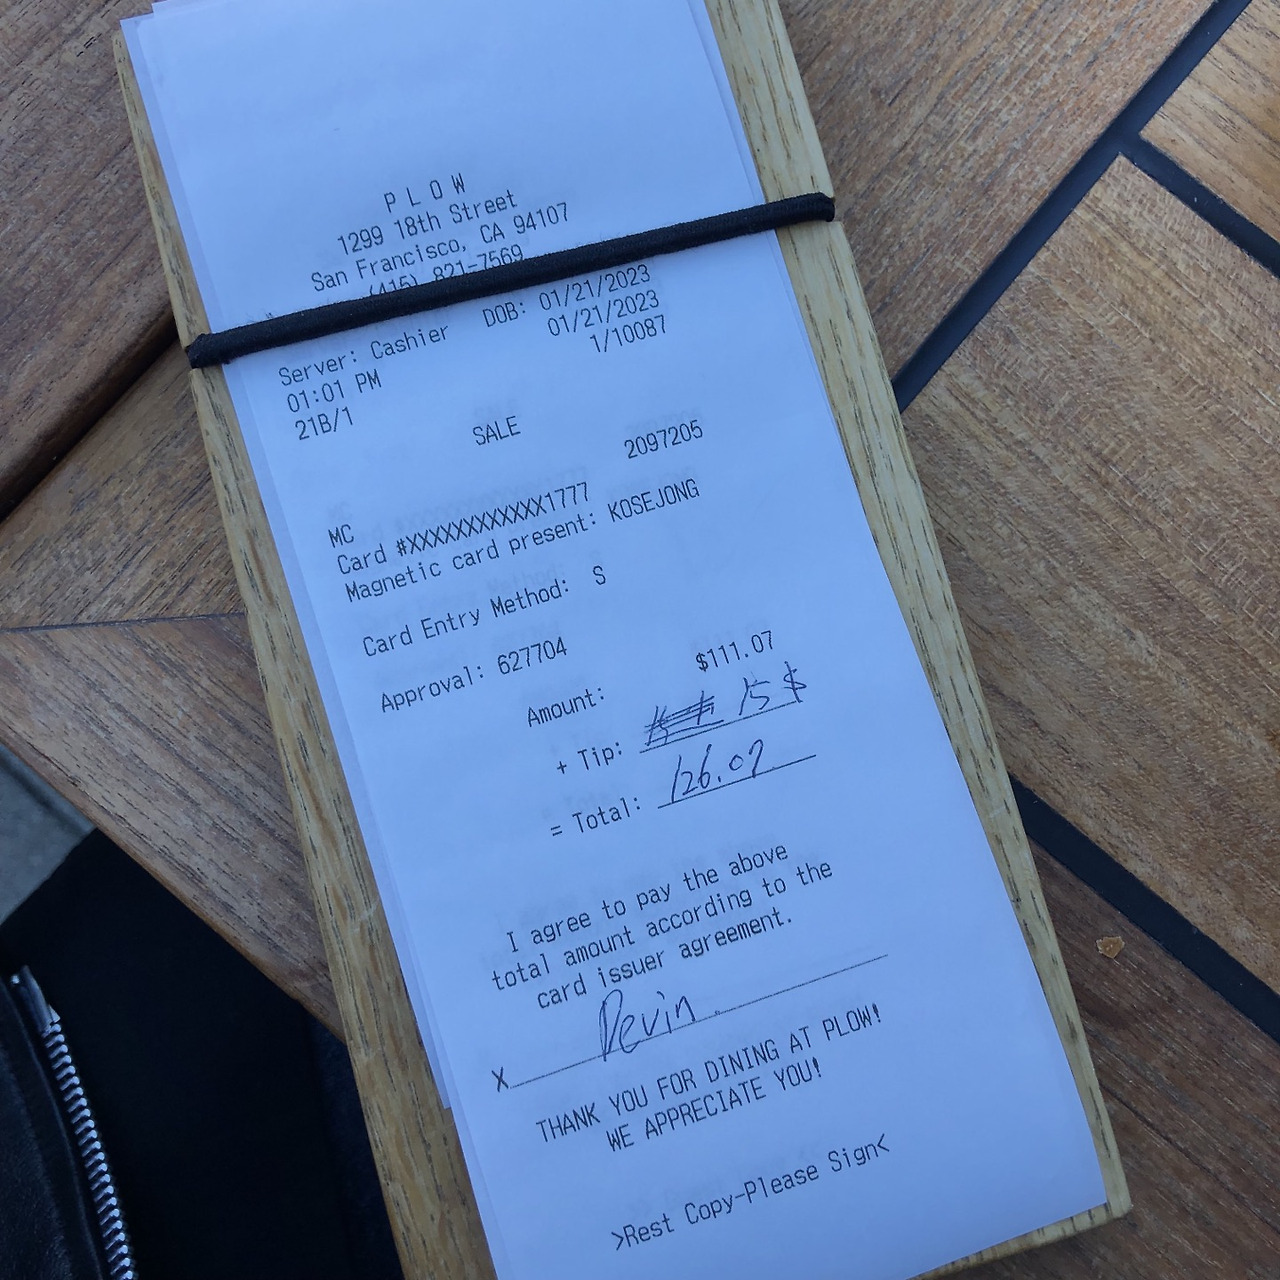 P L O W
1299 18th Street
San Francisco, CA 94107
(415) 821-7569
Server: Cashier DOB: 01/21/2023
01:01 PM 01/21/2023
21B/1 1/10087
SALE
2097205
MC
Card #XXXXXXXXXXXX1777
Magnetic card present: KOSEJONG
Card Entry Method: S
Approval: 627704
Amount: $111.07
+ Tip: 15 $
= Total: 126.07
I agree to pay the above
total amount according to the
card issuer agreement.
X Devin
THANK YOU FOR DINING AT PLOW!
WE APPRECIATE YOU!
>Rest Copy-Please Sign<